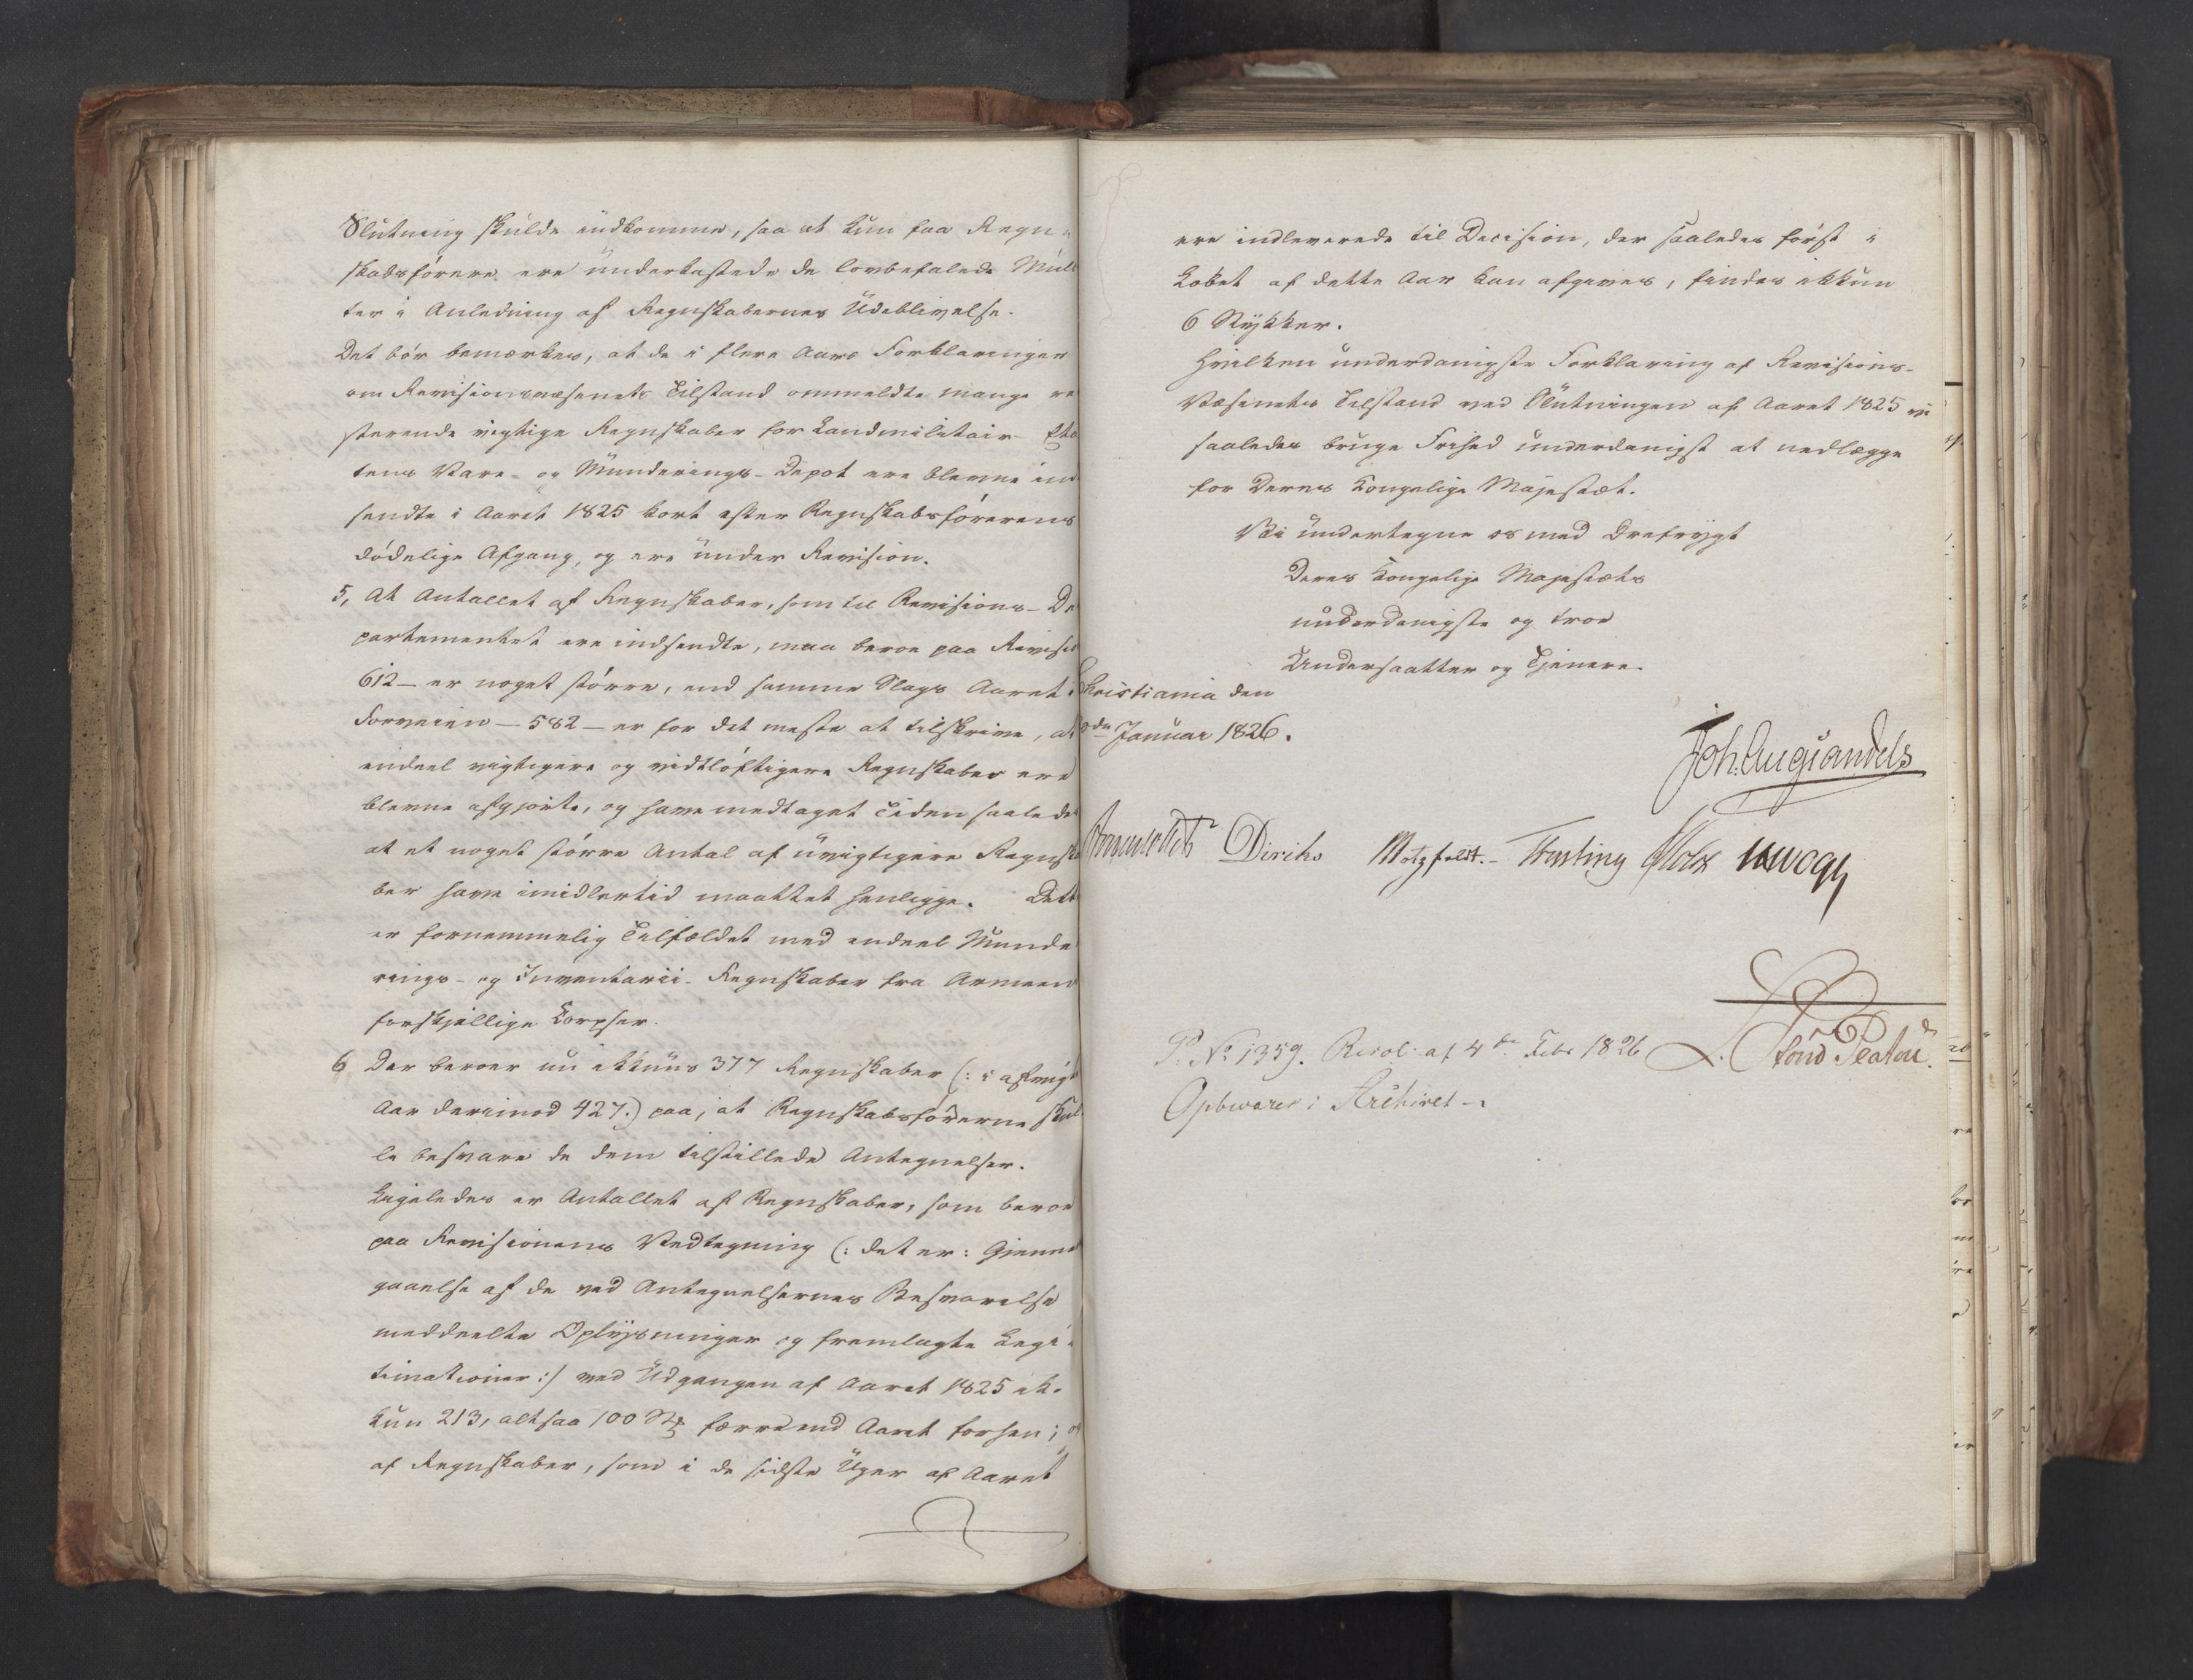 Slutning skulde indkomme, saa at kun faa Regn-
skabsförere ere underkastede de lovbefalede Mulc
ter i Anledning af Regnskabernes Udeblivelse.
Det bör bemærkes, at de i flere Aars Forklaringer
om Revisionsvæsenets Tilstand ommeldte mange re
sterende vigtige Regnskaber for Landmilitair-Eta
tens Vare- og Munderings-Depot ere blevne ind
sendte i Aaret 1825 kort efter Regnskabsförerens
dödelige Afgang, og ere under Revision.
5, At Antallet af Regnskaber, som til Revisions-De
partementet ere indsendte, maa beroe paa Revisio
612 - er noget större, end samme Slags Aaret i
Forveien - 582 - er for det meste at tilskrive, at
endeel vigtigere og vidtlöftigere Regnskaber ere
blevne afgjorte, og have medtaget Tiden saaledes
at et noget större Antal af uvigtigere Regnska
ber have imidlertid maattet henligge. Dette
er fornemmelig Tilfældet med endeel Munde
rings- og Inventarii-Regnskaber fra Armeens
forskjellige Corpser.
6 Der beroer nu ikkuns 377 Regnskaber (: i afvigte
Aar derimod 427:) paa, at Regnskabsförerne skul
le besvare de dem tilstillede Antegnelser.
Ligeledes er Antallet af Regnskaber, som beroe
paa Revisionens Vedtegning (: det er: Giennem
gaaelse af de ved Antegnelsernes Besvarelse
meddeelte Oplysninger og fremlagte Legi-
timationer :/ ved Udgangen af Aaret 1825 ik-
kun 213, altsaa 100 St færre end Aaret forhen; og
af Regnskaber, som i de sidste Uger af Aaret
ere indleverede til Decision, der saaledes först i
Löbet af dette Aar kan afgives, findes ikkun
6 Stykker.
Hvilken underdanigste Forklaring af Revisions-
Væsenets Tilstand ved Slutningen af Aaret 1825 vi
saaledes bruge Frihed underdanigst at nedlægge
for Deres Kongelige Majestæt.
Vi undertegne os med Ærefrygt
Deres Kongelige Majestæts
underdanigste og troe
Undersaatter og Tjenere.
Christiania den
Januar 1826.
Joh. Aug Sandels
Diriks Motzfeldt. Fasting Holst
P. No 1359. Resol: af 4de Febr 1826
Opbevares i Archivet -